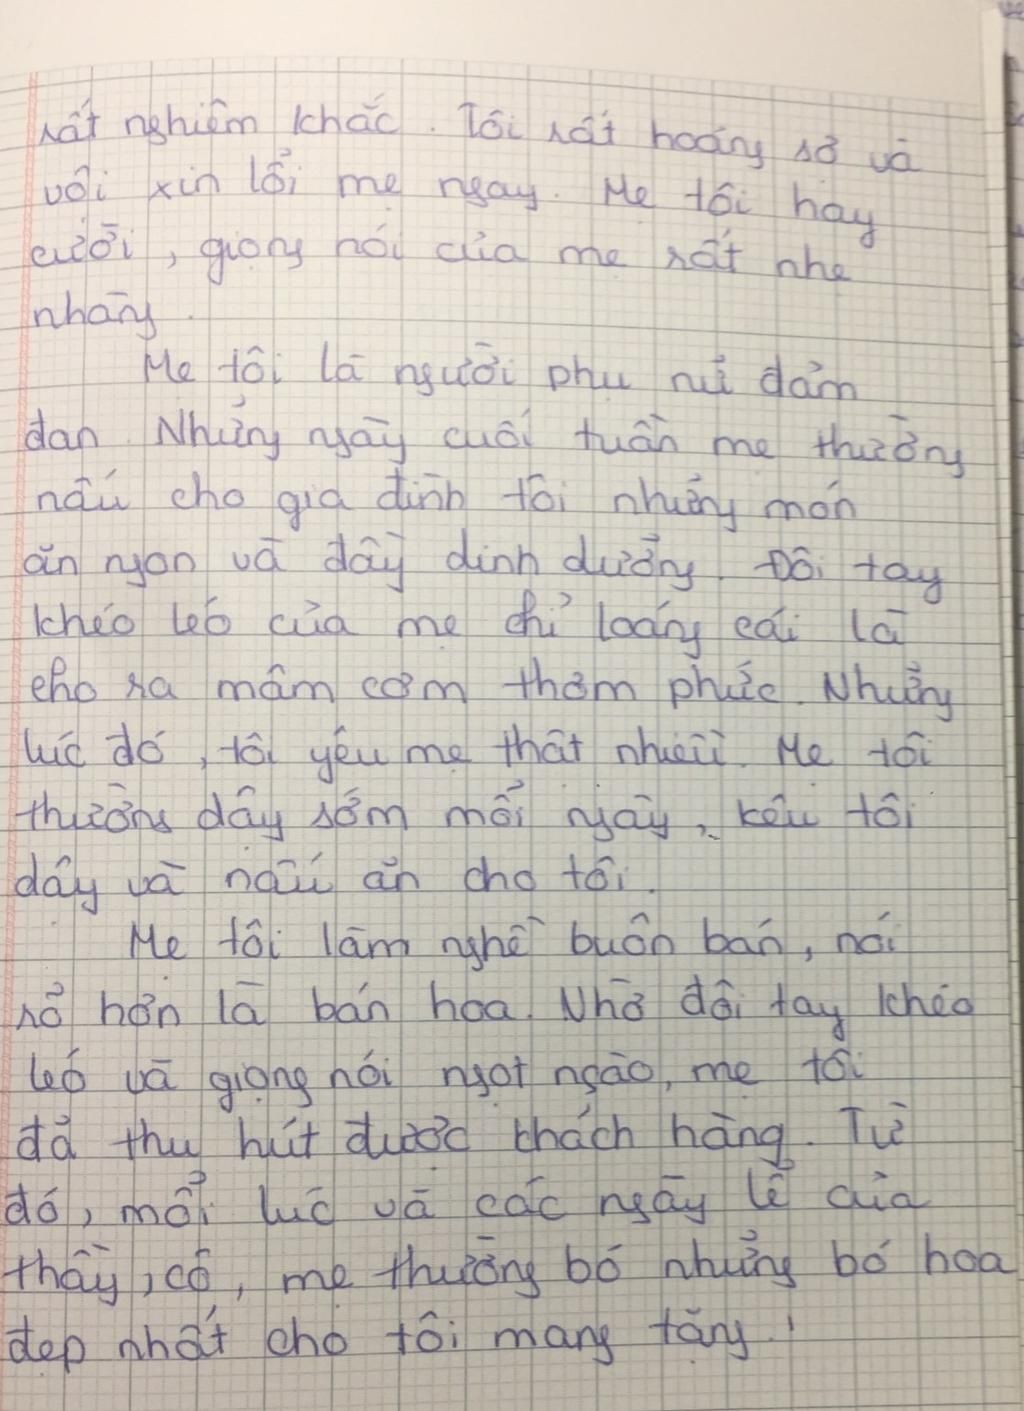 rất nghiêm khắc. Tôi rất hoảng sở và
vội xin lỗi mẹ ngay. Mẹ tôi hay
cười, giọng nói của mẹ rất nhẹ
nhàng.
Mẹ tôi là người phụ nử đảm
đan. Nhửng ngày cuối tuần mẹ thường
nấu cho gia đình tôi nhửng món
ăn ngon và đầy dinh dưởng. Đôi tay
khéo léo của mẹ chỉ loáng cái là
cho ra mâm cơm thơm phức. Nhửng
lúc đó, tôi yêu mẹ thật nhiều. Mẹ tôi
thường dậy sớm mổi ngày, kêu tôi
dậy và nấu ăn cho tôi.
Mẹ tôi làm nghề buôn bán, nói
rỏ hơn là bán hoa. Nhờ đôi tay khéo
léo và giọng nói ngọt ngào, mẹ tôi
đả thu hút được khách hàng. Từ
đó, mổi lúc và các ngày lể của
thầy, cô, mẹ thường bó nhửng bó hoa
đẹp nhất cho tôi mang tặng.!